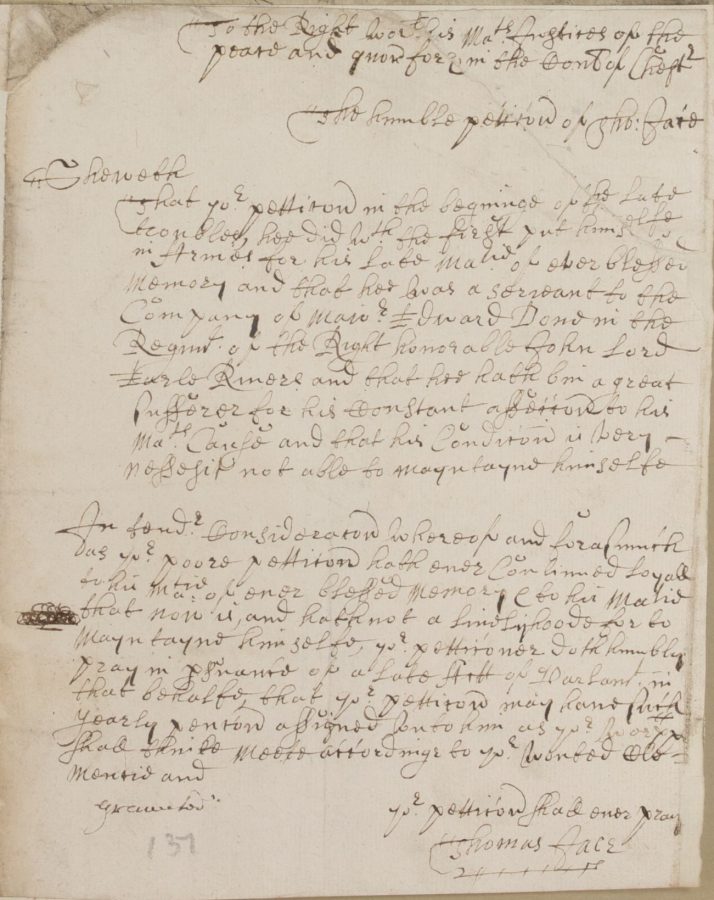 To the Right wor:ll his Ma:ts Justices of the
peace and quorū for & in the Count of Chestr
The humble peticōn of Tho: Jace
Sheweth
That yor petticōn in the begininge of the late
troubles, hee did wth the first put himselfe
in Armes for his late Matie of ever blessed
Memory and that hee was a servant to the
Company of Maior Edward Done in the
Regimt. of the Right honorable John Lord
Earle Rivers and that hee hath bin a great
sufferer for his Constant affeccōn to his
Ma:ts Cause and that his Condicōn is very
nessesit not able to mayntayne himselfe
In tendr Consideracōn whereof and forasmuch
as yor poore petticōn hath ever Continued loyall
to his Matie of ever blessed Memory & to his Matie
that now is, and hath not a livelyhoode for to
mayntayne himselfe, yor peticōner doth humbly
pray in psuance of a late Act of Parlamt. in
that behalfe, that yor petticōn may have such
yearly pencōn assigned unto him as yor worpps
shall thinke meete accordinge to yor wonted Cle-
mencie and
yor petticōn shall ever pray
Thomas Jace
137